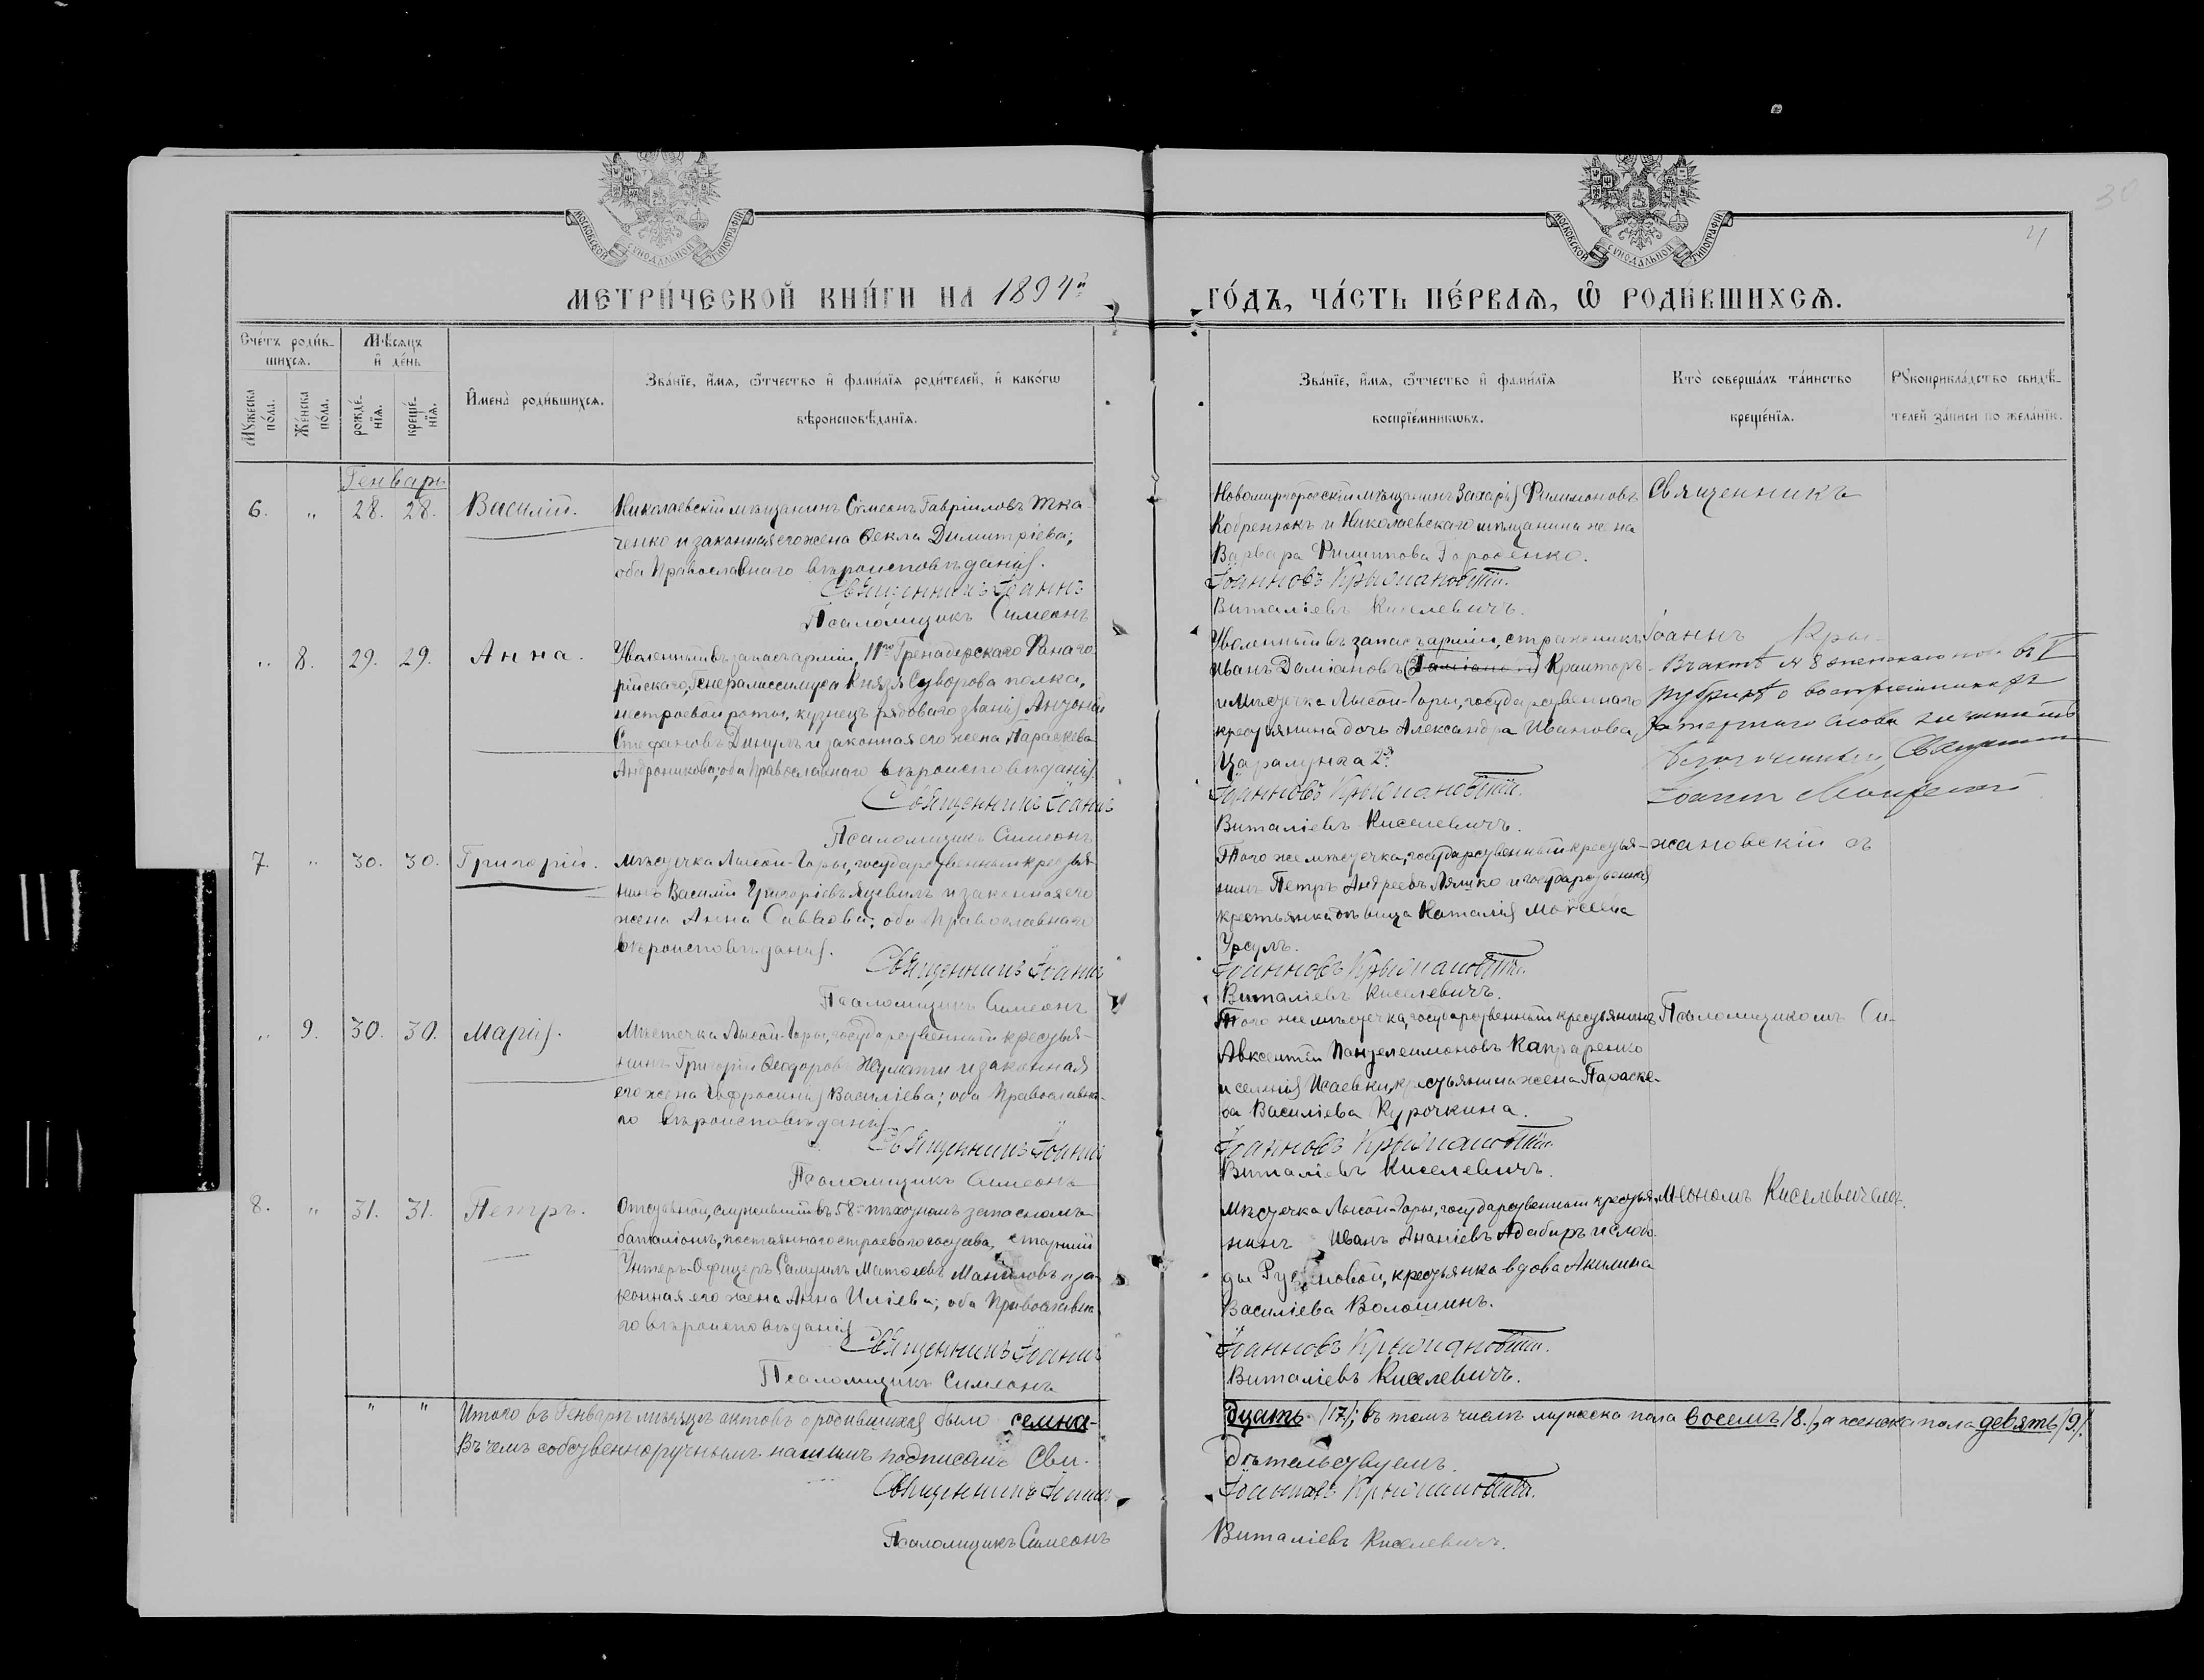 30
4
МОСКОВСКОЙ СѴНОДАЛЬНОЙ ТИПОГРАФІИ
МОСКОВСКОЙ СѴНОДАЛЬНОЙ ТИПОГРАФІИ
МЕТРИ́ЧЕСКОЙ КНИ́ГИ НА 1894й
ГО́ДЪ, ЧА́СТЬ ПЕ́РВАѦ, Ѿ РОДИ́ВШИХСѦ.
Сче́тъ роди́в-
шихсѧ.
Мѣ́сѧцъ
и҆ де́нь
Мꙋ́жеска по́ла.
Же́нска по́ла.
рожде́-
нїѧ.
креще́-
нїѧ.
И҆мена̀ роди́вшихсѧ.
Зва́нїе, и҆́мѧ, ѻ҆́тчество и҆ фами́лїѧ роди́телей, и҆ како́гѡ
вѣроисповѣ́данїѧ.
Зва́нїе, и҆́мѧ, ѻ҆́тчество и҆ фами́лїѧ
воспрїе́мникѡвъ.
Кто̀ соверша́лъ та́инство
креще́нїѧ.
Рꙋкоприкла́дство свидѣ́-
телей за́писи по жела́нїю.
Генварь
6. " 28. 28. Василій.
Николаевскій мѣщанинъ Сѵмеонъ Гавріиловъ Тка-
ченко и законная его жена Ѳекла Димитріева;
оба Православнаго вѣроисповѣданія.
Священникъ Іоаннъ
Псаломщикъ Симеонъ
Новомиргородскій мѣщанинъ Захарія Филимоновъ
Кобренюкъ и Николаевскаго мѣщанина жена
Варвара Филиппова Городенко.
Іоанновъ Крыжановскій.
Виталіевъ Киселевичъ.
Священникъ
" 8. 29. 29. Анна.
Уволенный въ запасъ арміи, 11го Гренадерскаго Фанаго-
рійскаго, Генералиссимуса Князя Суворова полка,
нестроевой роты, кузнецъ рядоваго званія Антоній
Стефановъ Динулъ и законная его жена Параскева
Андроникова; оба Православнаго вѣроисповѣданія.
Священникъ Іоаннъ
Псаломщикъ Симеонъ
Уволенный въ запасъ арміи, стражникъ
Иванъ Даміановъ Краиторъ
и мѣстечка Лысой-Горы, государственнаго
крестьянина дочь Александра Иванова
Царалунга 2я
Іоанновъ Крыжановскій.
Виталіевъ Киселевичъ.
Іоаннъ Кры-
Въ актѣ № 8 женскаго пола въ V
рубрикѣ о воспріемникахъ
Священникъ
Іоаннъ
7. " 30. 30. Григорій.
Мѣстечка Лысой-Горы, государственный крестья-
нинъ Василій Григоріевъ и законная его
жена Анна Саввова; оба Православнаго
вѣроисповѣданія.
Священникъ Іоаннъ
Псаломщикъ Симеонъ
Того же мѣстечка, государственный крестья-
нинъ Петръ Андреевъ Ляшко и государственная
крестьянка дѣвица Наталія Моисеева
Урсулъ.
Іоанновъ Крыжановскій.
Виталіевъ Киселевичъ.
жановскій съ
" 9. 30. 30. Марія.
Мѣстечка Лысой-Горы, государственный крестья-
нинъ Григорій Ѳеодоровъ и законная
его жена Евфросинія Василіева; оба Православна-
го вѣроисповѣданія.
Священникъ Іоаннъ
Псаломщикъ Симеонъ
Того же мѣстечка, государственный крестьянинъ
Авксентій Пантелеимоновъ Капраренко
и селенія Исаевки, крестьянина жена Параске-
ва Василіева Курочкина.
Іоанновъ Крыжановскій.
Виталіевъ Киселевичъ.
Псаломщикомъ Си-
8. " 31. 31. Петръ.
Отставной, служившій въ 58м пѣхотномъ запасномъ
баталіонѣ, постояннаго строеваго состава, старшій
Унтеръ-Офицеръ Самуилъ Матѳіевъ Маниловъ и за-
конная его жена Анна Иліева; оба Православна-
го вѣроисповѣданія
Священникъ Іоаннъ
Псаломщикъ Симеонъ
Мѣстечка Лысой-Горы, государственный крестья-
нинъ Иванъ Ананіевъ Адабиръ и слобо-
ды крестьянка вдова Акилина
Василіева Волошинъ.
Іоанновъ Крыжановскій.
Виталіевъ Киселевичъ.
меономъ Киселевичемъ.
" " Итого въ Генварѣ мѣсяцѣ актовъ о родившихся было семна-
дцать /17/; въ томъ числѣ мужеска пола восемь /8./, а женска пола девять /9/.
Въ чемъ собственноручнымъ нашимъ подписомъ Сви-
дѣтельствуемъ.
Священникъ Іоаннъ
Іоанновъ Крыжановскій.
Псаломщикъ Симеонъ
Виталіевъ Киселевичъ.